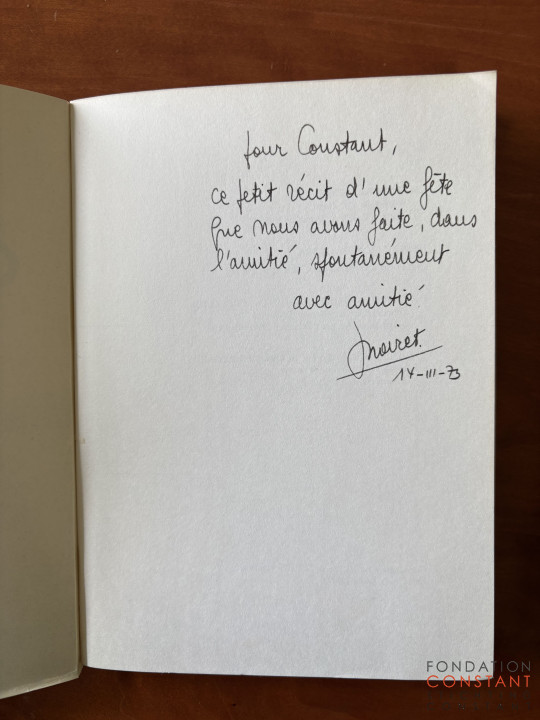 pour Constant,
ce petit récit d'une fête
que nous avons faite, dans
l'amitié, spontanément
avec amitié
Noiret.
14-III-73
FONDATION
CONSTANT